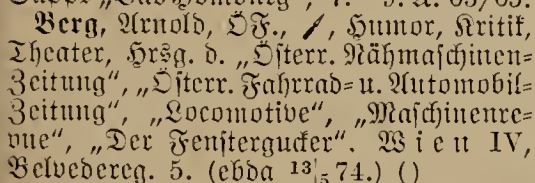 Berg, Arnold, ÖF., Humor, Kritik,
Theater, Hrsg. d. „Österr. Nähmaschinen-
Zeitung“, „Österr. Fahrrad- u. Automobil-
Zeitung“, „Locomotive“, „Maschinenre-
vue“, „Der Fenstergucker“. Wien IV,
Belvedereg. 5. (ebda 13|5 74.) ()